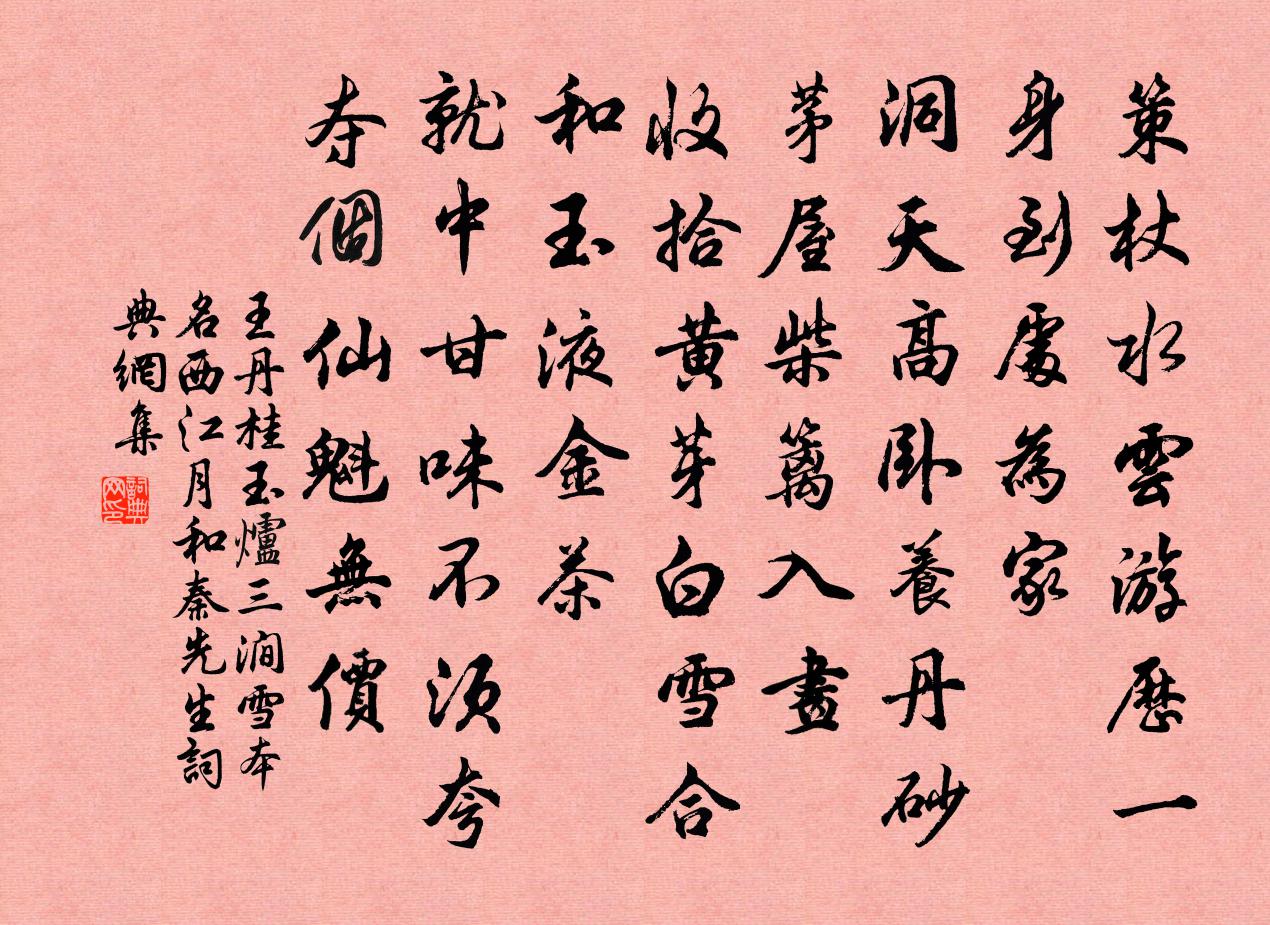 策杖水雲游歷一
身到處為家
洞天高卧養丹砂
茅屋柴篱入畫
收拾黃芽白雪合
和玉液金茶
就中甘味不須夸
夺個仙魁無價
王丹桂玉爐三澗雪本
名西江月和秦先生詞
典網集
詞典
网印